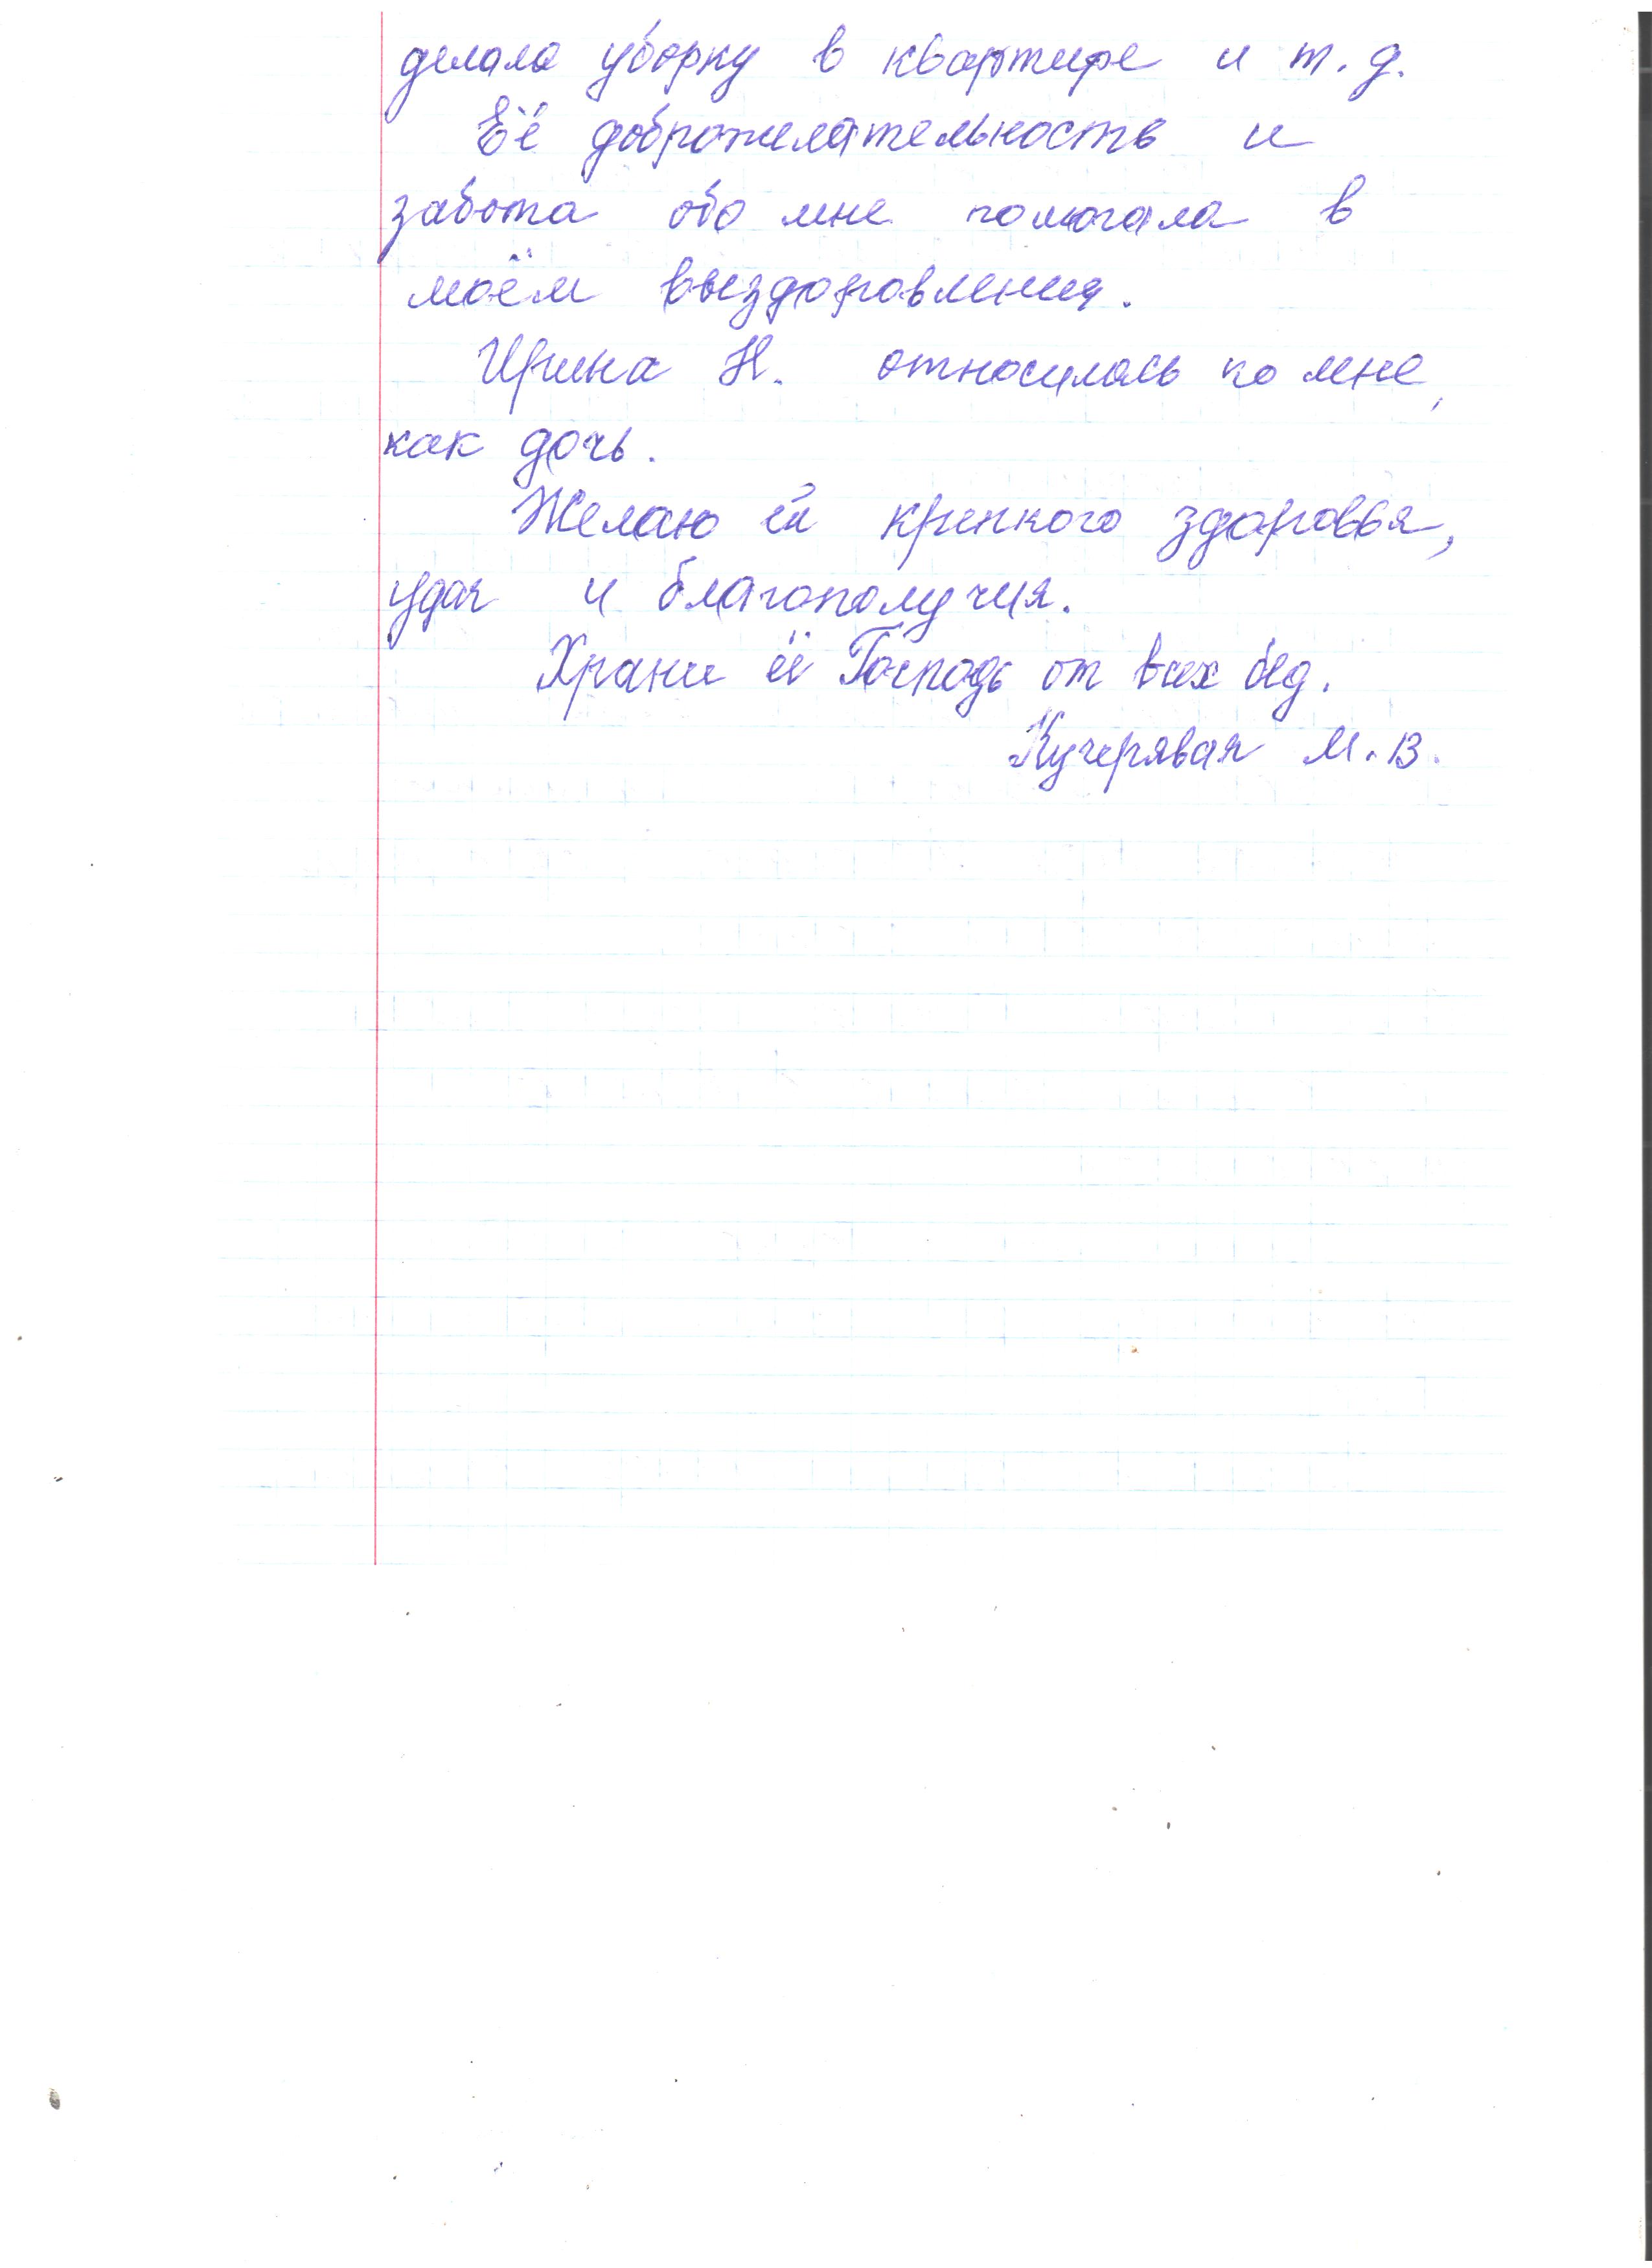 делала уборку в квартире и т.д.
Её доброжелательность и
забота обо мне помогала в
моём выздоровлении.
Ирина Н. относилась ко мне,
как дочь.
Желаю ей крепкого здоровья,
удач и благополучия.
Храни её Господь от всех бед.
Кучерявая М.В.